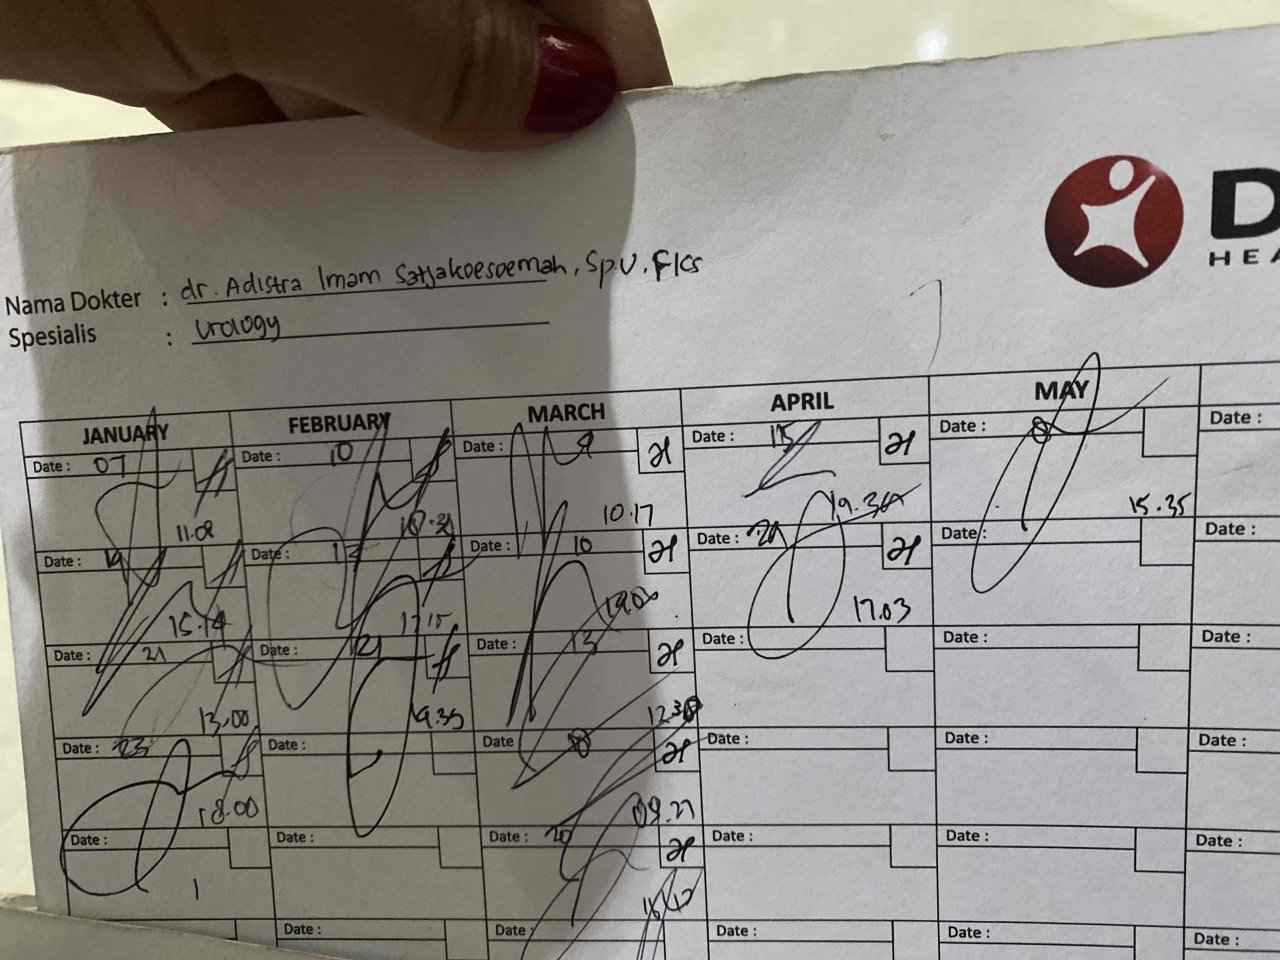 D
HEA
Nama Dokter : dr. Adistra Imam Satjakoesoemah, Sp.U, FICS
Spesialis : Urology
JANUARY FEBRUARY MARCH APRIL MAY
Date : 07 Date : 10 Date : 9 Date : 15 Date : 8 Date :
11.08 10.17 19.30 15.35
Date : 19 Date : 13 Date : 10 Date : 29 Date : Date :
15.14 17.15 19.00 17.03
Date : 21 Date : 21 Date : 13 Date : Date : Date :
13.00 19.35 12.30
Date : 23 Date : Date : Date : Date : Date :
18.00 09.27
Date : Date : Date : 20 Date : Date : Date :
Date : Date : Date : Date : Date :